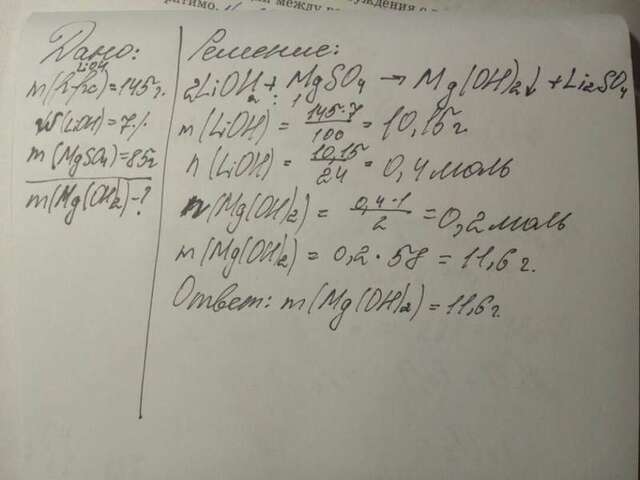 между
Дано:
LiOH
m(p-pa)=145г.
W(LiOH)=7%
m(MgSO4)=85г
m(Mg(OH)2)-?
Решение:
2LiOH + MgSO4 → Mg(OH)2↓ + Li2SO4
2 : 1
m(LiOH) = 145·7/100 = 10,15г
n(LiOH) = 10,15/24 = 0,4моль
n(Mg(OH)2) = 0,4·1/2 = 0,2моль
m(Mg(OH)2) = 0,2·58 = 11,6г.
Ответ: m(Mg(OH)2) = 11,6г.